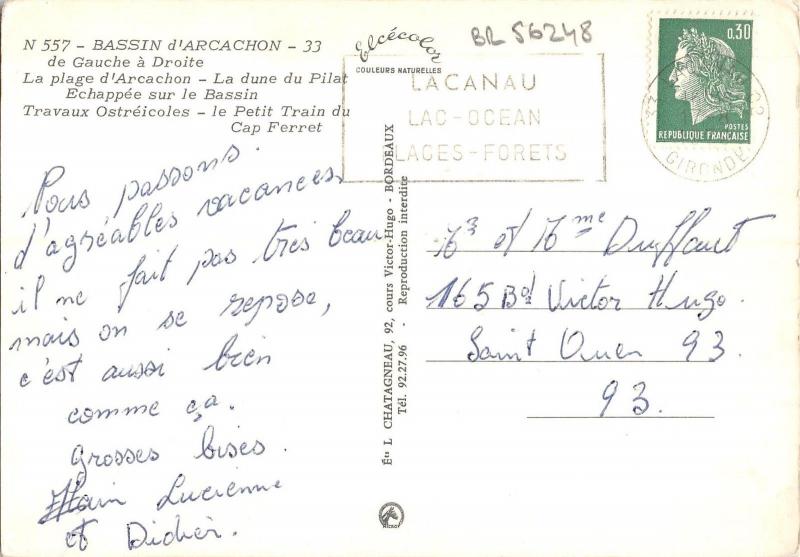 BR 56248
N 557 - BASSIN d'ARCACHON - 33
de Gauche à Droite
La plage d'Arcachon - La dune du Pilat
Echappée sur le Bassin
Travaux Ostréicoles - le Petit Train du
Cap Ferret
Elcécolor
COULEURS NATURELLES
LACANAU
LAC-OCEAN
PLAGES-FORETS
0,30
POSTES
REPUBLIQUE FRANÇAISE
GIRONDE
Nous passons
d'agréables vacances
il ne fait pas très beau
mais on se repose,
c'est aussi bien
comme ça.
grosses bises.
Alain Lucienne
et Didier.
Éts L CHATAGNEAU, 92, cours Victor-Hugo - BORDEAUX
Tél. 92.27.96 - Reproduction interdite
Mr et Mme
165 Bd Victor Hugo.
Saint Ouen 93.
93.